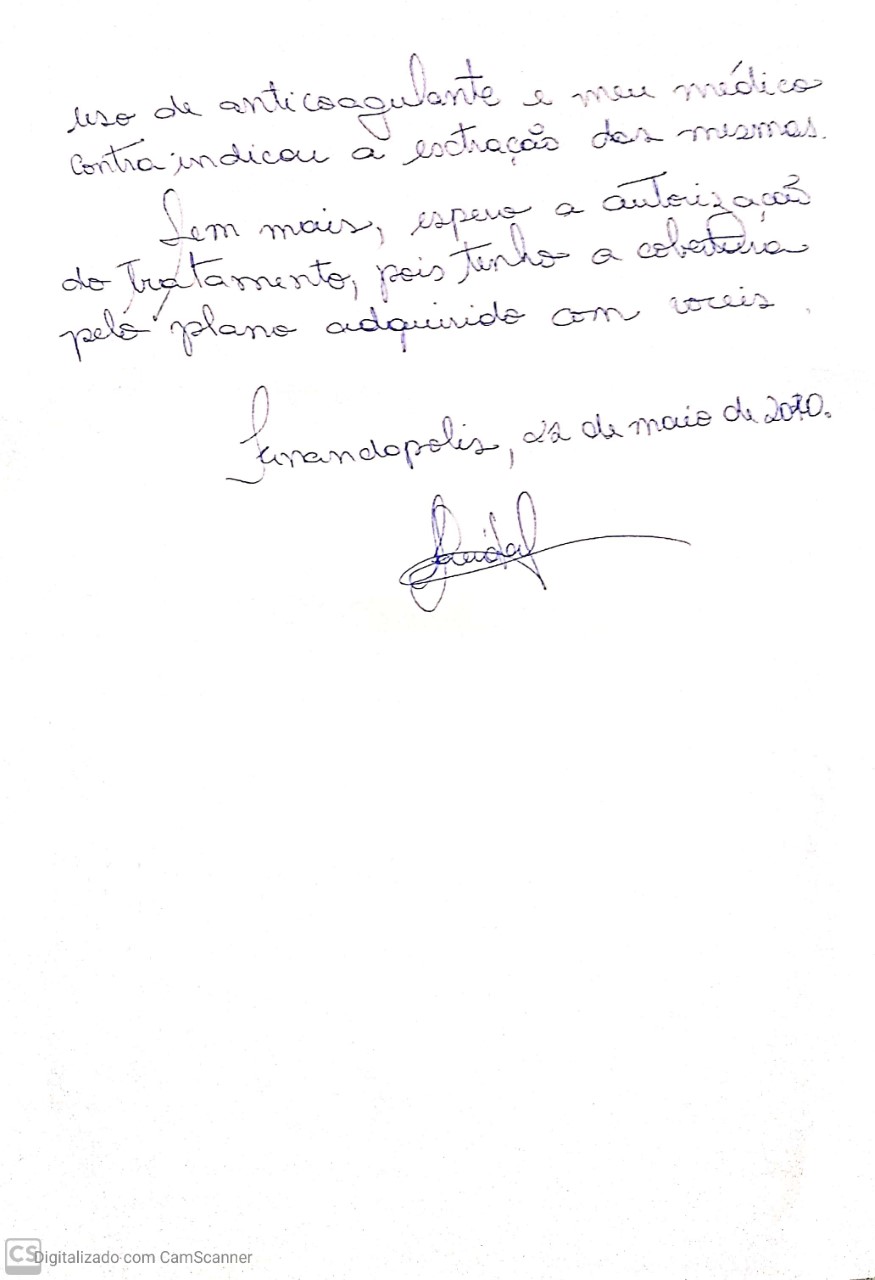 uso de anticoagulante e meu médico
contra indicou a esctração das mesmas.
Sem mais, espero a autorização
do tratamento, pois tenho a cobertura
pelo plano adquirido com voceis.
Fernandopolis, 22 de maio de
CS Digitalizado com CamScanner